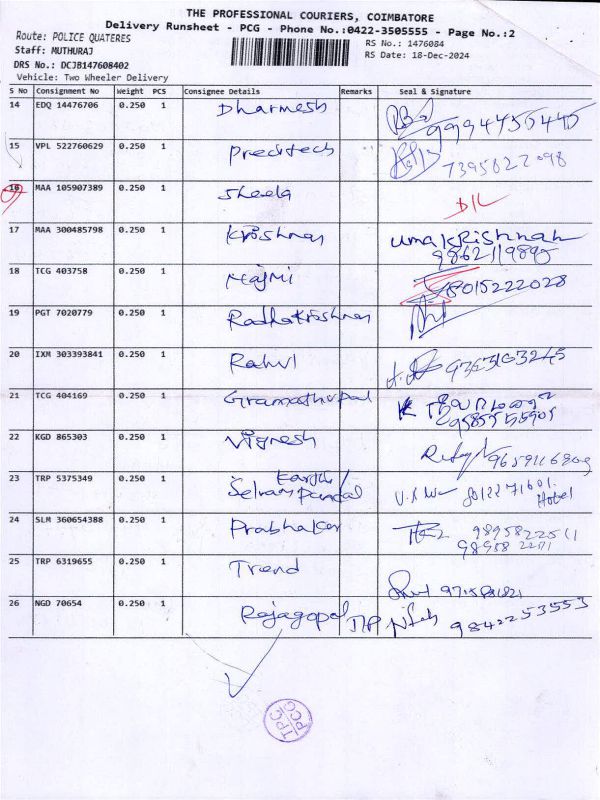 THE PROFESSIONAL COURIERS, COIMBATORE
Delivery Runsheet - PCG - Phone No.:0422-3505555 - Page No.:2
Route: POLICE QUATERES
RS No.: 1476084
Staff: MUTHURAJ
RS Date: 18-Dec-2024
DRS No.: DCJB147608402
Vehicle: Two Wheeler Delivery
S No Consignment No Weight PCS Consignee Details Remarks Seal & Signature
14 EDQ 14476706 0.250 1 Dharmesh
15 VPL 522760629 0.250 1 Preditech 7395822098
16 MAA 105907389 0.250 1 Sheela D/L
17 MAA 300485798 0.250 1 Krishnan umakRishnah
18 TCG 403758 0.250 1 Najmi 8015222028
19 PGT 7020779 0.250 1 Radhakrishnan
20 IXM 303393841 0.250 1 Rahul 9363163245
21 TCG 404169 0.250 1
22 KGD 865303 0.250 1 Vignesh
23 TRP 5375349 0.250 1 Selvam
24 SLM 360654388 0.250 1 Prabhakar
25 TRP 6319655 0.250 1 Trend
26 NGD 70654 0.250 1 Rajagopal 9842253553
TPC
PCG